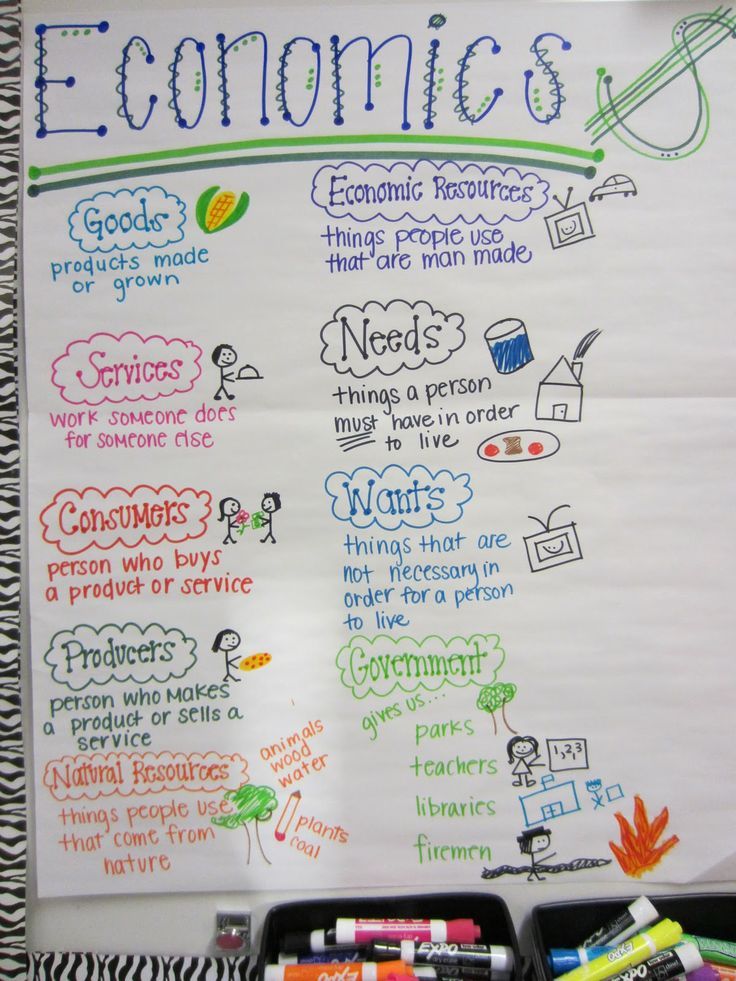 Economics
Goods
products made
or grown
Services
work someone does
for someone else
Consumers
person who buys
a product or service
Producers
person who makes
a product or sells a
service
Natural Resources
things people use
that come from
nature
animals
wood
water
plants
coal
Economic Resources
things people use
that are man made
Needs
things a person
must have in order
to live
Wants
things that are
not necessary in
order for a person
to live
Government
gives us...
parks
teachers
1,2,3
libraries
firemen
EXPO
EXPO
EXPO
EXPO
EXPO